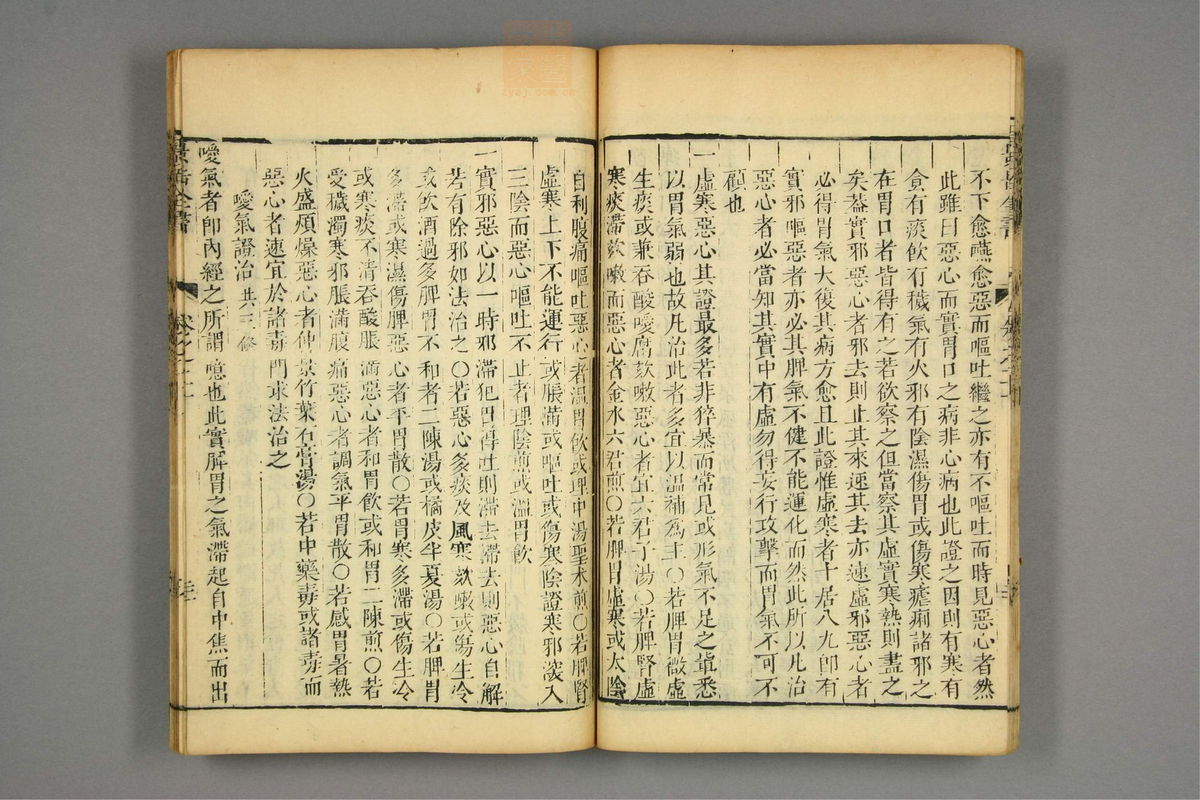 不下愈嚥愈惡而嘔吐繼之亦有不嘔吐而時見惡心者然
此雖曰惡心而實胃口之病非心病也此證之因則有寒有
食有痰飲有穢氣有火邪有陰濕傷胃或傷寒瘧痢諸邪之
在胃口者皆得有之若欲察之但當察其虛實寒熱則盡之
矣蓋實邪惡心者邪去則止其來速其去亦速虛邪惡心者
必得胃氣大復其病方愈且此證惟虛寒者十居八九即有
實邪嘔惡者亦必其脾氣不健不能運化而然此所以凡治
惡心者必當知其實中有虛勿得妄行攻擊而胃氣不可不
顧也
一虛寒惡心其證最多若非猝暴而常見或形氣不足之輩悉
以胃氣弱也故凡治此者多宜以溫補為主○若脾胃微虛
生痰或兼吞酸噯腐欬嗽惡心者宜六君子湯○若脾腎虛
寒痰滯欬嗽而惡心者金水六君煎○若脾胃虛寒或太陰
自利腹痛嘔吐惡心者溫胃飲或理中湯聖术煎○若脾腎
虛寒上下不能運行或脹滿或嘔吐或傷寒陰證寒邪深入
三陰而惡心嘔吐不止者理陰煎或溫胃飲
一實邪惡心以一時邪滯犯胃得吐則滯去滯去則惡心自解
若有除邪如法治之○若惡心多痰及風寒欬嗽或傷生冷
或飲酒過多脾胃不和者二陳湯或橘皮半夏湯○若脾胃
多滯或寒濕傷脾惡心者平胃散○若胃寒多滯或傷生冷
或寒痰不清吞酸脹滿惡心者和胃飲或和胃二陳煎○若
受穢濁寒邪脹滿腹痛惡心者調氣平胃散○若感胃暑熱
火盛煩燥惡心者仲景竹葉石膏湯○若中藥毒或諸毒而
惡心者速宜於諸毒門求法治之
噯氣證治 共三條
噯氣者即內經之所謂噫也此實脾胃之氣滯起自中焦而出
景岳全書
卷之二十一